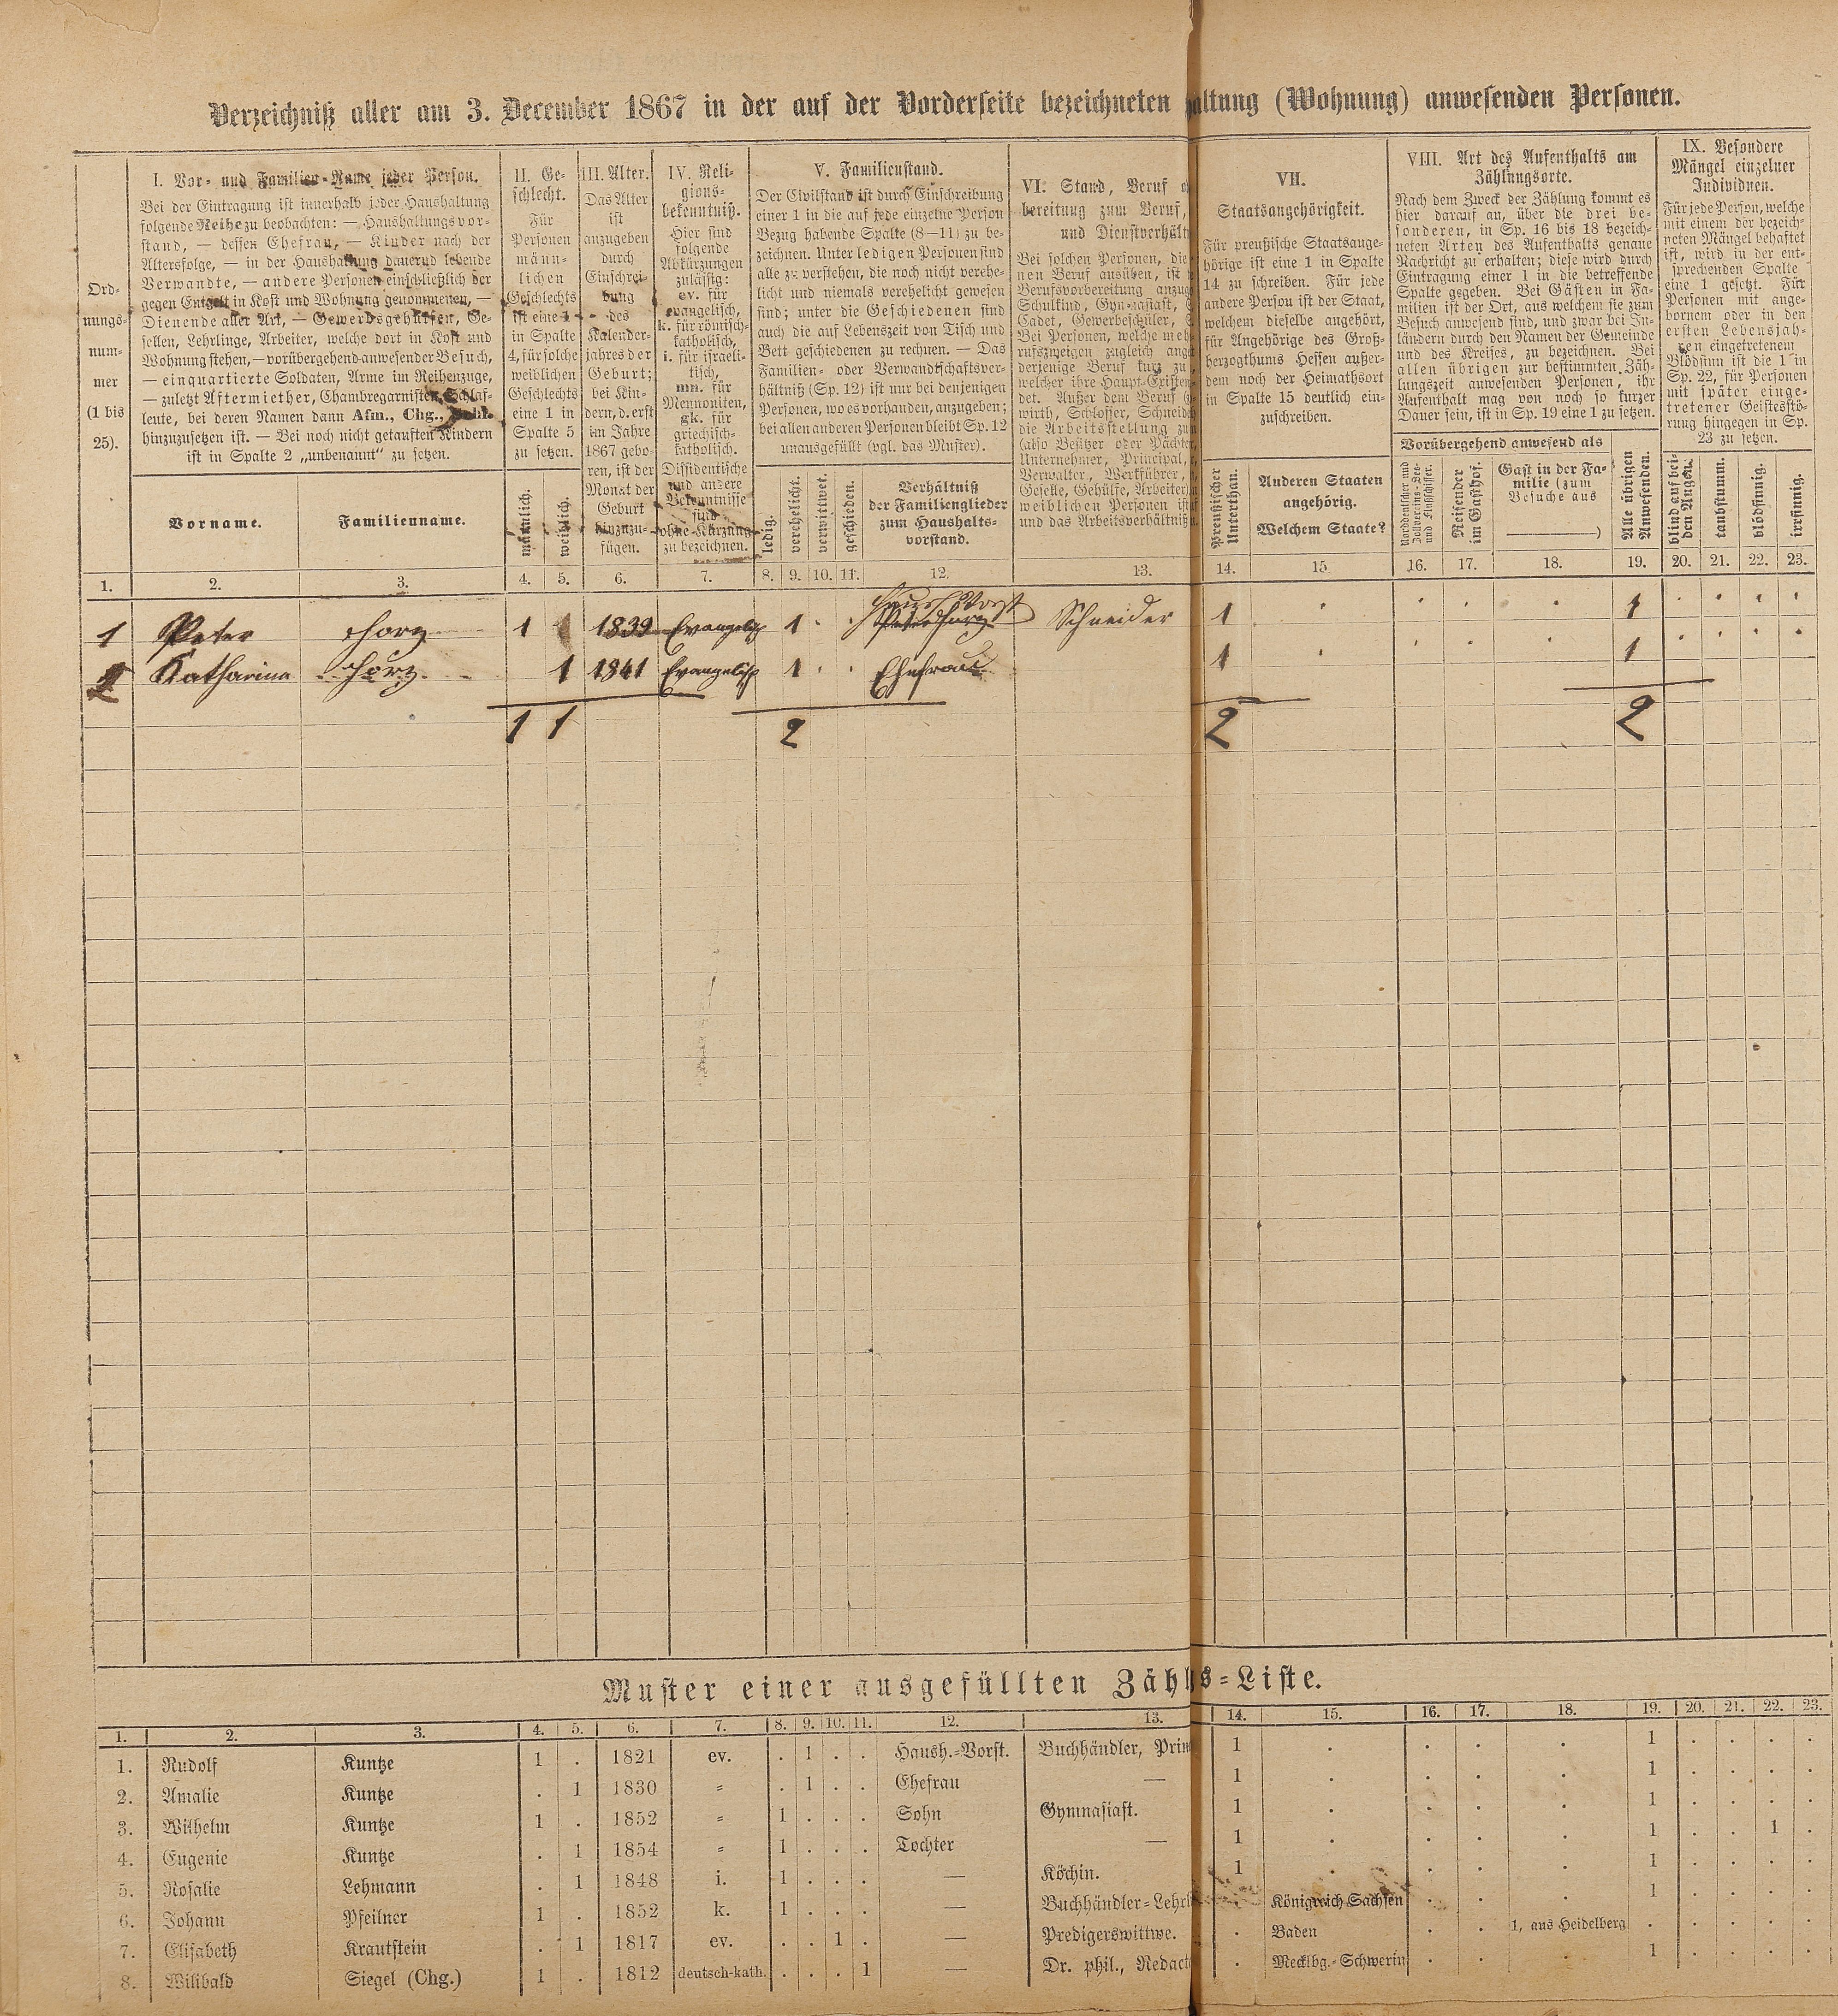 Verzeichniß aller am 3. December 1867 in der auf der Vorderseite bezeichneten altung (Wohnung) anwesenden Personen.
Ord-
nungs-
num-
mer
(1 bis
25).
I. Vor- und Familien-Name jeder Person.
Bei der Eintragung ist innerhalb jeder Haushaltung
folgende Reihe zu beobachten: — Haushaltungsvor-
stand, — dessen Ehefrau, — Kinder nach der
Altersfolge, — in der Haushaltung dauernd lebende
Verwandte, — andere Personen einschließlich der
gegen Entgelt in Kost und Wohnung genommenen, —
Dienende aller Art, — Gewerbsgehülfen, Ge-
sellen, Lehrlinge, Arbeiter, welche dort in Kost und
Wohnung stehen, — vorübergehend anwesender Besuch,
— einquartierte Soldaten, Arme im Reihenzuge,
— zuletzt Aftermiether, Chambregarnisten, Schlaf-
leute, bei deren Namen dann Afm., Chg., Schl.
hinzuzusetzen ist. — Bei noch nicht getauften Kindern
ist in Spalte 2 „unbenannt“ zu setzen.
Vorname.
Familienname.
II. Ge-
schlecht.
Für
Personen
männ-
lichen
Geschlechts
ist eine 1
in Spalte
4, für solche
weiblichen
Geschlechts
eine 1 in
Spalte 5
zu setzen.
männlich.
weiblich.
III. Alter.
Das Alter
ist
anzugeben
durch
Einschrei-
bung
des
Kalender-
jahres der
Geburt;
bei Kin-
dern, d. erst
im Jahre
1867 gebo-
ren, ist der
Monat der
Geburt
hinzuzu-
fügen.
IV. Reli-
gions-
bekenntniß.
Hier sind
folgende
Abkürzungen
zulässig:
ev. für
evangelisch,
k. für römisch-
katholisch,
i. für israeli-
tisch,
mn. für
Mennoniten,
gk. für
griechisch-
katholisch.
Dissidentische
und andere
Bekenntnisse
sind
ohne Kürzung
zu bezeichnen.
V. Familienstand.
Der Civilstand ist durch Einschreibung
einer 1 in die auf jede einzelne Person
Bezug habende Spalte (8—11) zu be-
zeichnen. Unter ledigen Personen sind
alle zu verstehen, die noch nicht verehe-
licht und niemals verehelicht gewesen
sind; unter die Geschiedenen sind
auch die auf Lebenszeit von Tisch und
Bett geschiedenen zu rechnen. — Das
Familien- oder Verwandtschaftsver-
hältniß (Sp. 12) ist nur bei denjenigen
Personen, wo es vorhanden, anzugeben;
bei allen anderen Personen bleibt Sp. 12
unausgefüllt (vgl. das Muster).
ledig.
verehelicht.
verwittwet.
geschieden.
Verhältniß
der Familienglieder
zum Haushalts-
vorstand.
VI. Stand, Beruf o
bereitung zum Beruf,
und Dienstverhält
Bei solchen Personen, die
nen Beruf ausüben, ist
Berufsvorbereitung anzug
Schulkind, Gymnasiast,
Cadet, Gewerbeschüler,
Bei Personen, welche meh
rufszweigen zugleich ange
derjenige Beruf kurz zu
welcher ihre Haupt-Existen
det. Außer dem Beruf
wirth, Schlosser, Schneid
die Arbeitsstellung zu
(also Besitzer oder Pächter,
Unternehmer, Principal,
Verwalter, Werkführer,
Geselle, Gehülfe, Arbeiter)
weiblichen Personen ist
und das Arbeitsverhältniß
VII.
Staatsangehörigkeit.
Für preußische Staatsange-
hörige ist eine 1 in Spalte
14 zu schreiben. Für jede
andere Person ist der Staat,
welchem dieselbe angehört,
für Angehörige des Groß-
herzogthums Hessen außer-
dem noch der Heimathsort
in Spalte 15 deutlich ein-
zuschreiben.
Preußischer
Unterthan.
Anderen Staaten
angehörig.
Welchem Staate?
VIII. Art des Aufenthalts am
Zählungsorte.
Nach dem Zweck der Zählung kommt es
hier darauf an, über die drei be-
sonderen, in Sp. 16 bis 18 bezeich-
neten Arten des Aufenthalts genaue
Nachricht zu erhalten; diese wird durch
Eintragung einer 1 in die betreffende
Spalte gegeben. Bei Gästen in Fa-
milien ist der Ort, aus welchem sie zum
Besuch anwesend sind, und zwar bei In-
ländern durch den Namen der Gemeinde
und des Kreises, zu bezeichnen. Bei
allen übrigen zur bestimmten Zäh-
lungszeit anwesenden Personen, ihr
Aufenthalt mag von noch so kurzer
Dauer sein, ist in Sp. 19 eine 1 zu setzen.
Vorübergehend anwesend als
Norddeutscher und
Zollvereins-See-
und Flußschiffer.
Reisender
im Gasthof.
Gast in der Fa-
milie (zum
Besuche aus
)
Alle übrigen
Anwesenden.
IX. Besondere
Mängel einzelner
Individuen.
Für jede Person, welche
mit einem der bezeich-
neten Mängel behaftet
ist, wird in der ent-
sprechenden Spalte
eine 1 gesetzt. Für
Personen mit ange-
bornem oder in den
ersten Lebensjah-
ren eingetretenem
Blödsinn ist die 1 in
Sp. 22, für Personen
mit später einge-
tretener Geistesstö-
rung hingegen in Sp.
23 zu setzen.
blind auf bei-
den Augen.
taubstumm.
blödsinnig.
irrsinnig.
1. 2. 3. 4. 5. 6. 7. 8. 9. 10. 11. 12. 13. 14. 15 16. 17. 18. 19. 20. 21. 22. 23.
1 Peter 1 1839 Evangelisch 1 Schneider 1 1
2 Katharina 1 1841 Evangelisch 1 Ehefrau 1 1
1 1 2 2 2
Muster einer ausgefüllten Zähls-Liste.
1. 2. 3. 4. 5. 6. 7. 8. 9. 10. 11. 12. 13. 14. 15. 16. 17. 18. 19. 20. 21. 22. 23.
1. Rudolf Kuntze 1 . 1821 ev. . 1 . . Haush.-Vorst. Buchhändler, Prin 1 . . . . 1 . . . .
2. Amalie Kuntze . 1 1830 = . 1 . . Ehefrau — 1 . . . . 1 . . . .
3. Wilhelm Kuntze 1 . 1852 = 1 . . . Sohn Gymnasiast. 1 . . . . 1 . . . .
4. Eugenie Kuntze . 1 1854 = 1 . . . Tochter — 1 . . . . 1 . . 1 .
5. Rosalie Lehmann . 1 1848 i. 1 . . . — Köchin. 1 . . . . 1 . . . .
6. Johann Pfeilner 1 . 1852 k. 1 . . . — Buchhändler-Lehrl . Königreich Sachsen . . . 1 . . . .
7. Elisabeth Krautstein . 1 1817 ev. . . 1 . — Predigerswittwe. . Baden . . 1, aus Heidelberg . . . . .
8. Wilibald Siegel (Chg.) 1 . 1812 deutsch-kath. . . . 1 — Dr. phil., Redact . Mecklbg.-Schwerin . . . 1 . . . .